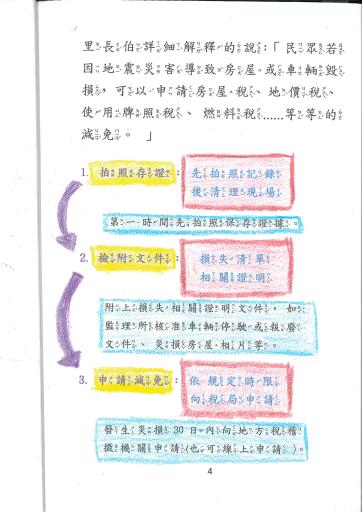 里長伯詳細解釋的說：「民眾若
因地震災害導致房屋或車輛毀
損，可以申請房屋稅、地價稅、
使用牌照稅、燃料稅……等等的
減免。」
1. 拍照存證：先拍照記錄
後清理現場
第一時間先拍照保存證據。
2. 檢附文件：損失清單
相關證明
附上損失相關證明文件，如
監理所核准車輛停駛或損廢
文件、災損房屋相片等。
3. 申請減免：依規定時限
向稅局申請
發生災損30日內向地方稅稽
徵機關申請(也可線上申請)。
4